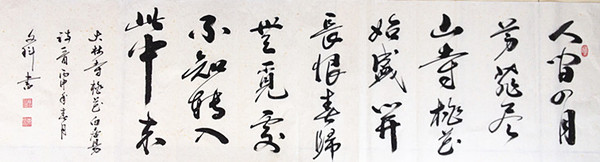 人间四月
芳菲尽
山寺桃花
始盛开
长恨春歸
無覓處
不知转入
此中来
大林寺桃花 白居易
诗一首 丙申年春月
文科书